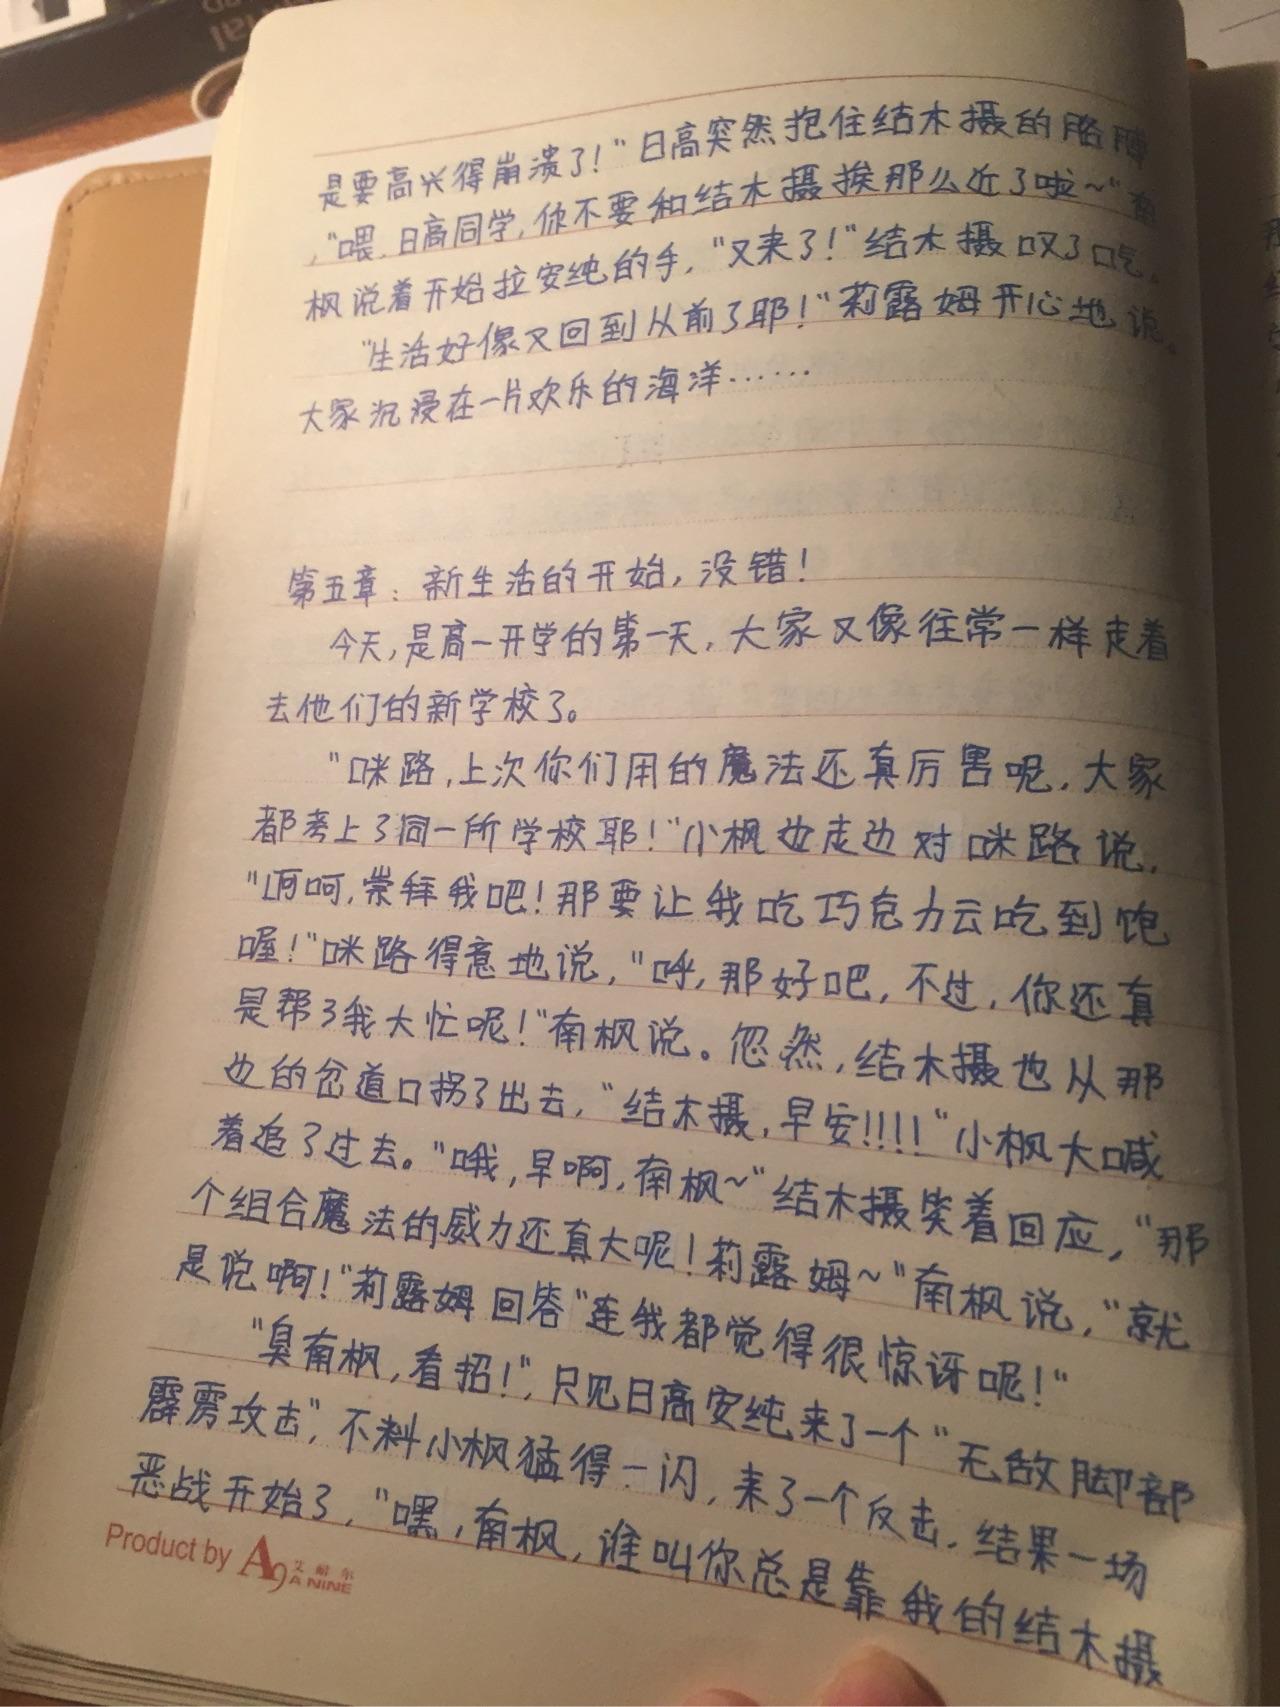 是要高兴得崩溃了！"日高突然抱住结木摄的胳膊
，"喂，日高同学，你不要和结木摄挨那么近了啦~"南
枫说着开始拉安纯的手，"又来了！"结木摄叹了口气。
"生活好像又回到从前了耶！"莉露姆开心地说。
大家沉浸在一片欢乐的海洋……
第五章：新生活的开始，没错！
今天，是高一开学的第一天，大家又像往常一样走着
去他们的新学校了。
"咪路，上次你们用的魔法还真厉害呢，大家
都考上了同一所学校耶！"小枫边走边对咪路说，
"呵呵，崇拜我吧！那要让我吃巧克力云吃到饱
喔！"咪路得意地说，"呼，那好吧，不过，你还真
是帮了我大忙呢！"南枫说。忽然，结木摄也从那
边的岔道口拐了出去，"结木摄，早安!!!!"小枫大喊
着追了过去。"哦，早啊，南枫~"结木摄笑着回应，"那
个组合魔法的威力还真大呢！莉露姆~"南枫说，"就
是说啊！"莉露姆回答"连我都觉得很惊讶呢！"
"臭南枫，看招！"，只见日高安纯来了一个"无敌脚部
霹雳攻击"，不料小枫猛得一闪，来了一个反击，结果一场
恶战开始了，"嘿，南枫，谁叫你总是靠我的结木摄
Product by A9 艾耐尔
A NINE